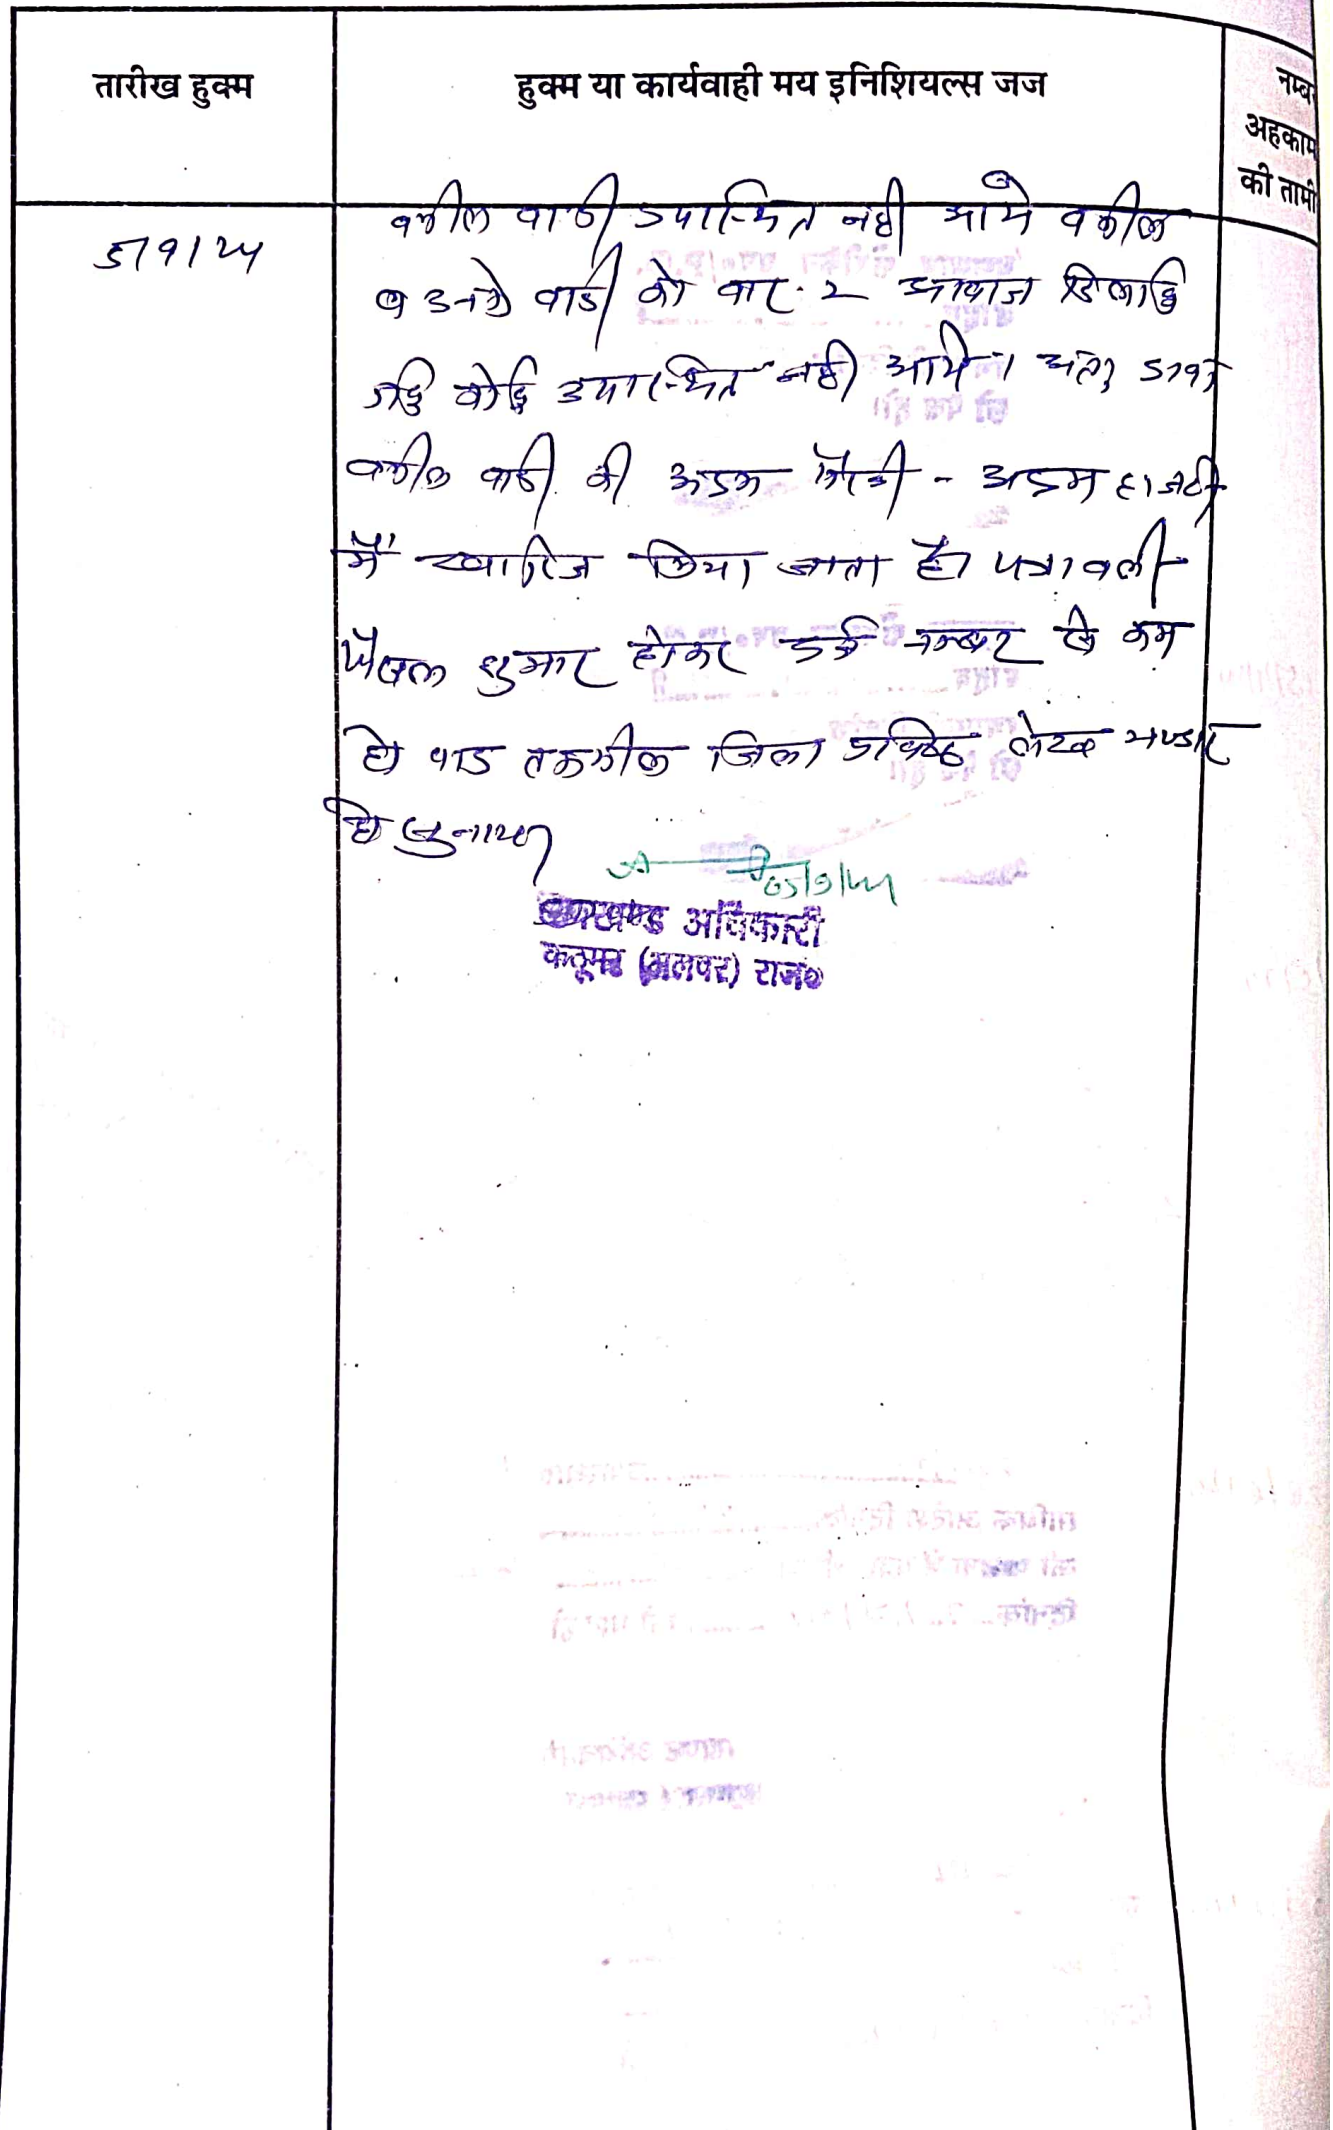 तारीख हुक्म
हुक्म या कार्यवाही मय इनिशियल्स जज
नम्ब
अहकाम
की तामी
5/9/24
वकील वादी उपस्थित नही आये वकील
व उनके वादी को बार-2 आवाज दिलाई
गई कोई उपस्थित नही आये। अतः दावा
वकील वादी की अदम पैरवी - अदम हाजरी
में खारिज किया जाता है। पत्रावली
फैसल शुमार होकर दर्ज नम्बर से कम
हो बाद तकमील जिला लेख भण्डार
हो सुनाया
05/9/24
उपखण्ड अधिकारी
कठूमर (अलवर) राज०